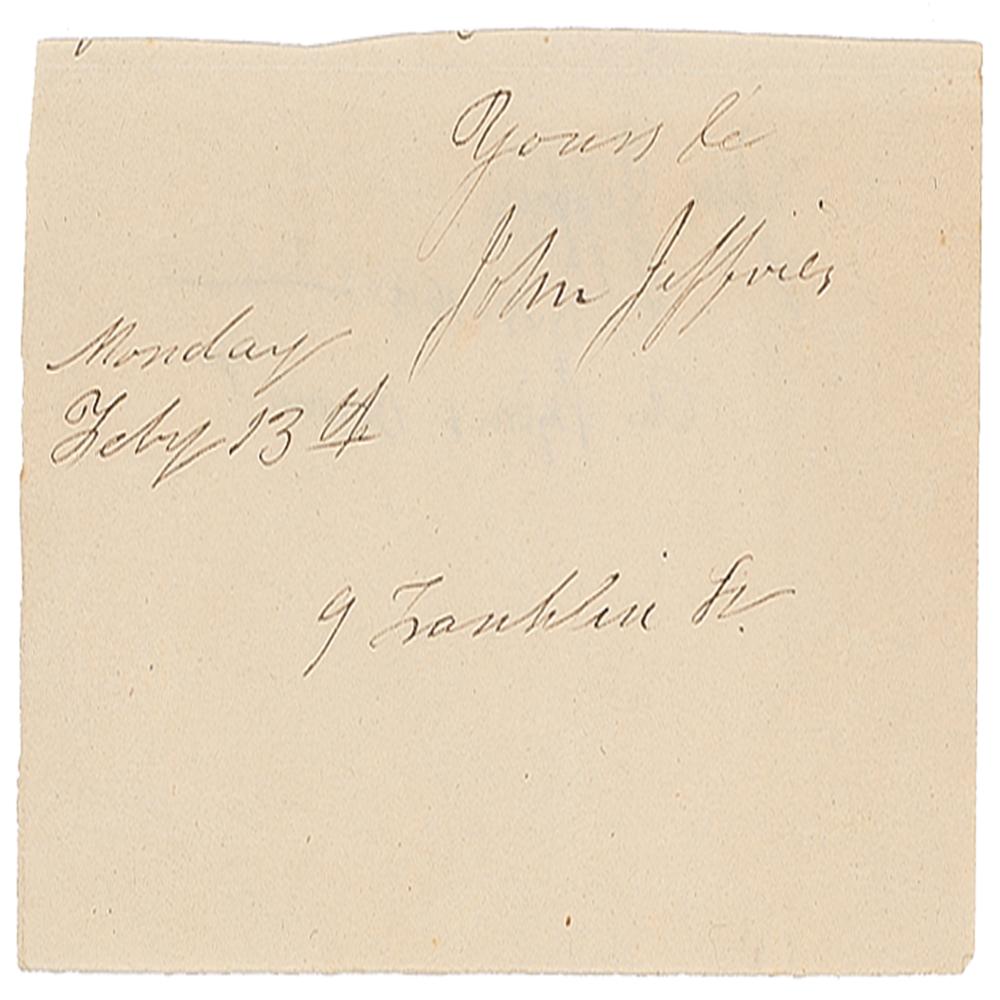 Yours &c
John Jeffries
Monday
Feby 13th
9 Franklin St.